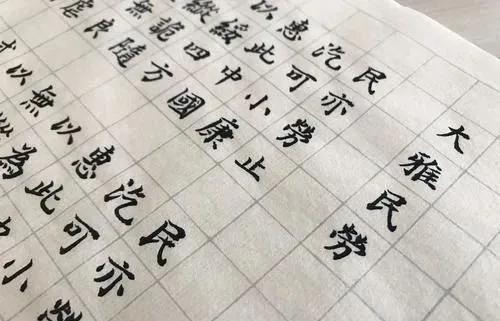 大雅民勞
民亦勞止
汔可小康
惠此中國
以綏四方
縱詭隨
無良
虐
民亦
汔可小
惠此中
以為
無
以